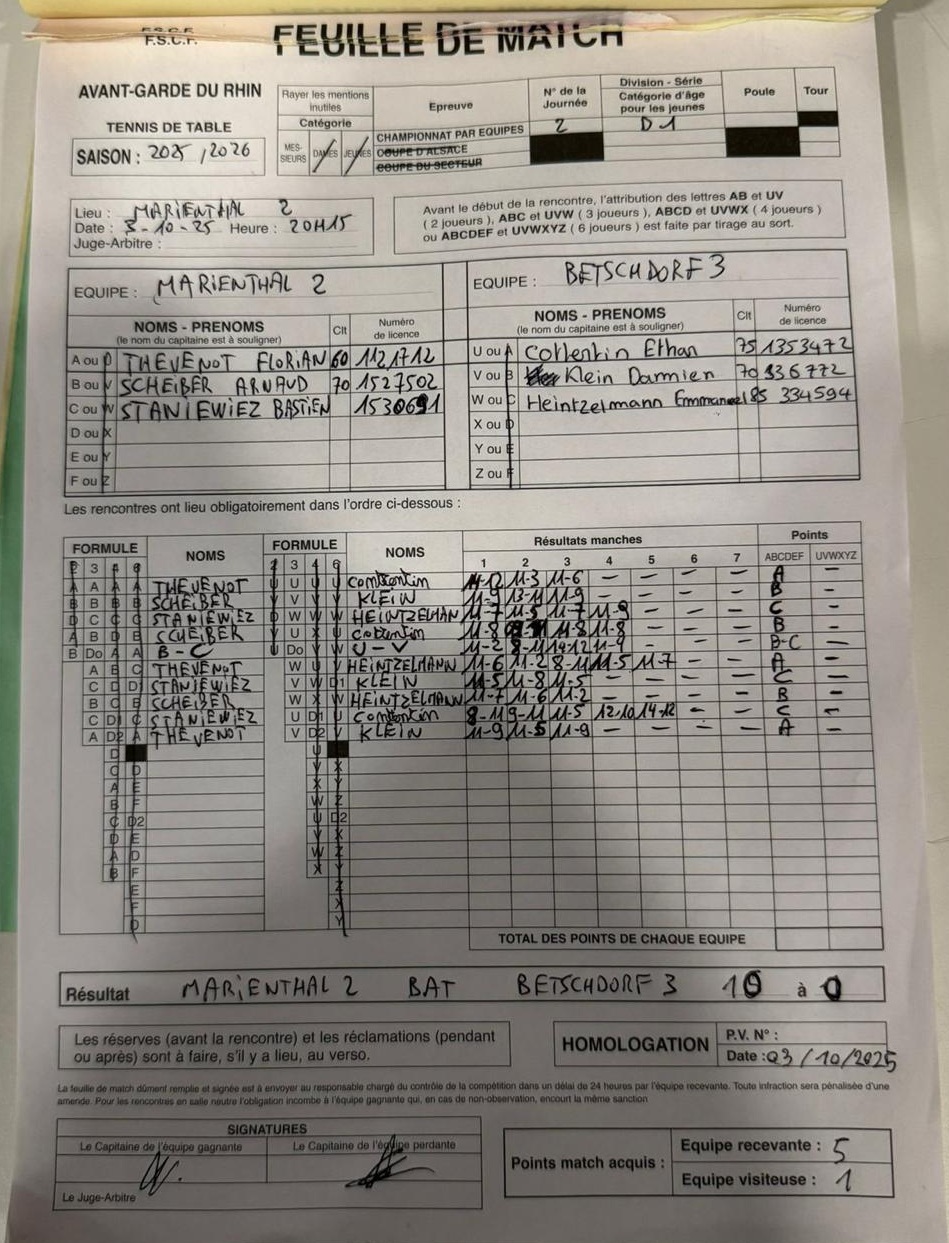 F.S.C.F.
FEUILLE DE MATCH
AVANT-GARDE DU RHIN
TENNIS DE TABLE
SAISON : 2025 / 2026
Rayer les mentions inutiles
Catégorie
MES-SIEURS DAMES JEUNES
Epreuve
CHAMPIONNAT PAR EQUIPES
COUPE D'ALSACE
COUPE DU SECTEUR
N° de la Journée
2
Division - Série
Catégorie d'âge pour les jeunes
D1
Poule
Tour
Lieu : MARIENTHAL 2
Date : 3-10-25 Heure : 20H15
Juge-Arbitre :
Avant le début de la rencontre, l'attribution des lettres AB et UV
( 2 joueurs ), ABC et UVW ( 3 joueurs ), ABCD et UVWX ( 4 joueurs )
ou ABCDEF et UVWXYZ ( 6 joueurs ) est faite par tirage au sort.
EQUIPE : MARIENTHAL 2
NOMS - PRENOMS Clt Numéro de licence
(le nom du capitaine est à souligner)
A ou U THEVENOT FLORIAN 60 1121712
B ou V SCHEIBER ARNAUD 70 1527502
C ou W STANIEWIEZ BASTIEN 1530691
D ou X
E ou Y
F ou Z
EQUIPE : BETSCHDORF 3
NOMS - PRENOMS Clt Numéro de licence
(le nom du capitaine est à souligner)
U ou A Cottentin Ethan 75 1353472
V ou B Klein Damien 70 336772
W ou C Heintzelmann Emmanuel 85 334594
X ou D
Y ou E
Z ou F
Les rencontres ont lieu obligatoirement dans l'ordre ci-dessous :
FORMULE NOMS FORMULE NOMS Résultats manches Points
2 3 4 6 2 3 4 6 1 2 3 4 5 6 7 ABCDEF UVWXYZ
A THEVENOT U Cottentin 14-12 11-3 11-6 – – – – A –
B SCHEIBER V KLEIN 11-9 13-11 11-9 – – – – B –
C STANIEWIEZ W HEINTZELMAN 11-7 11-5 11-7 11-9 – – – C –
B SCHEIBER U Cottentin 11-8 11-8 11-8 – – – B –
Do B-C Do U-V 11-2 8-11 14-12 11-9 – – – B-C –
A THEVENOT W HEINTZELMANN 11-6 11-2 8-11 11-5 11-7 – – A –
C STANIEWIEZ V KLEIN 11-5 11-8 11-5 – – – – C –
B SCHEIBER W HEINTZELMANN 11-7 11-6 11-2 – – – – B –
C STANIEWIEZ U Cottentin 8-11 9-11 11-5 12-10 14-12 – – C –
A THEVENOT V KLEIN 11-9 11-5 11-9 – – – – A –
TOTAL DES POINTS DE CHAQUE EQUIPE
Résultat MARIENTHAL 2 BAT BETSCHDORF 3 10 à 0
Les réserves (avant la rencontre) et les réclamations (pendant
ou après) sont à faire, s'il y a lieu, au verso.
HOMOLOGATION
P.V. N° :
Date : 03/10/2025
La feuille de match dûment remplie et signée est à envoyer au responsable chargé du contrôle de la compétition dans un délai de 24 heures par l'équipe recevante. Toute infraction sera pénalisée d'une
amende. Pour les rencontres en salle neutre l'obligation incombe à l'équipe gagnante qui, en cas de non-observation, encourt la même sanction
SIGNATURES
Le Capitaine de l'équipe gagnante Le Capitaine de l'équipe perdante
Le Juge-Arbitre
Points match acquis :
Equipe recevante : 5
Equipe visiteuse : 1